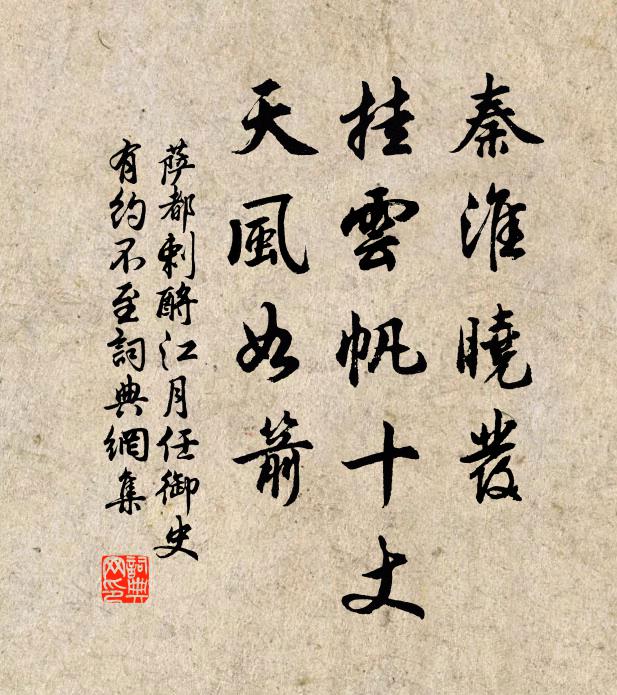 秦淮曉發
挂雲帆十丈
天風如箭
薩都剌酹江月任御史
有約不至詞典網集
詞典网印